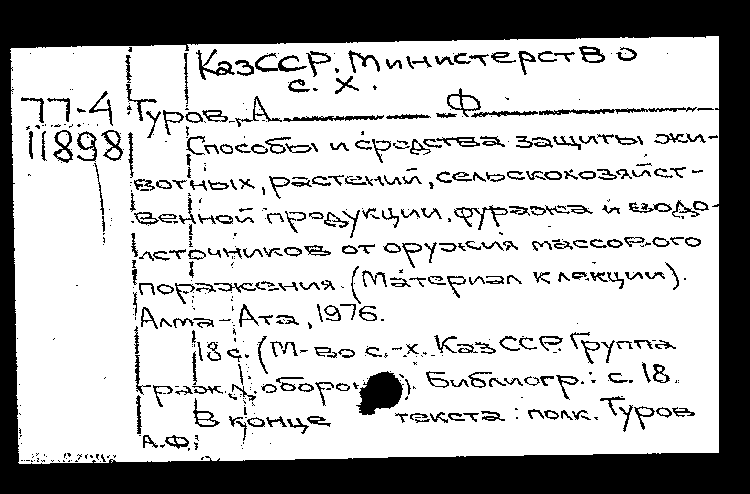 КазССР. Министерство
с. х.
77-4 Туров, А Ф
11898 Способы и средства защиты жи-
вотных, растений, сельскохозяйст-
венной продукции, фуража и водо-
источников от оружия массового
поражения. (Материал к лекции).
Алма-Ата, 1976.
18 с. (М-во с.-х. КазССР. Группа
гражд. оборон ). Библиогр.: с. 18.
В конце текста: полк. Туров
А.Ф.